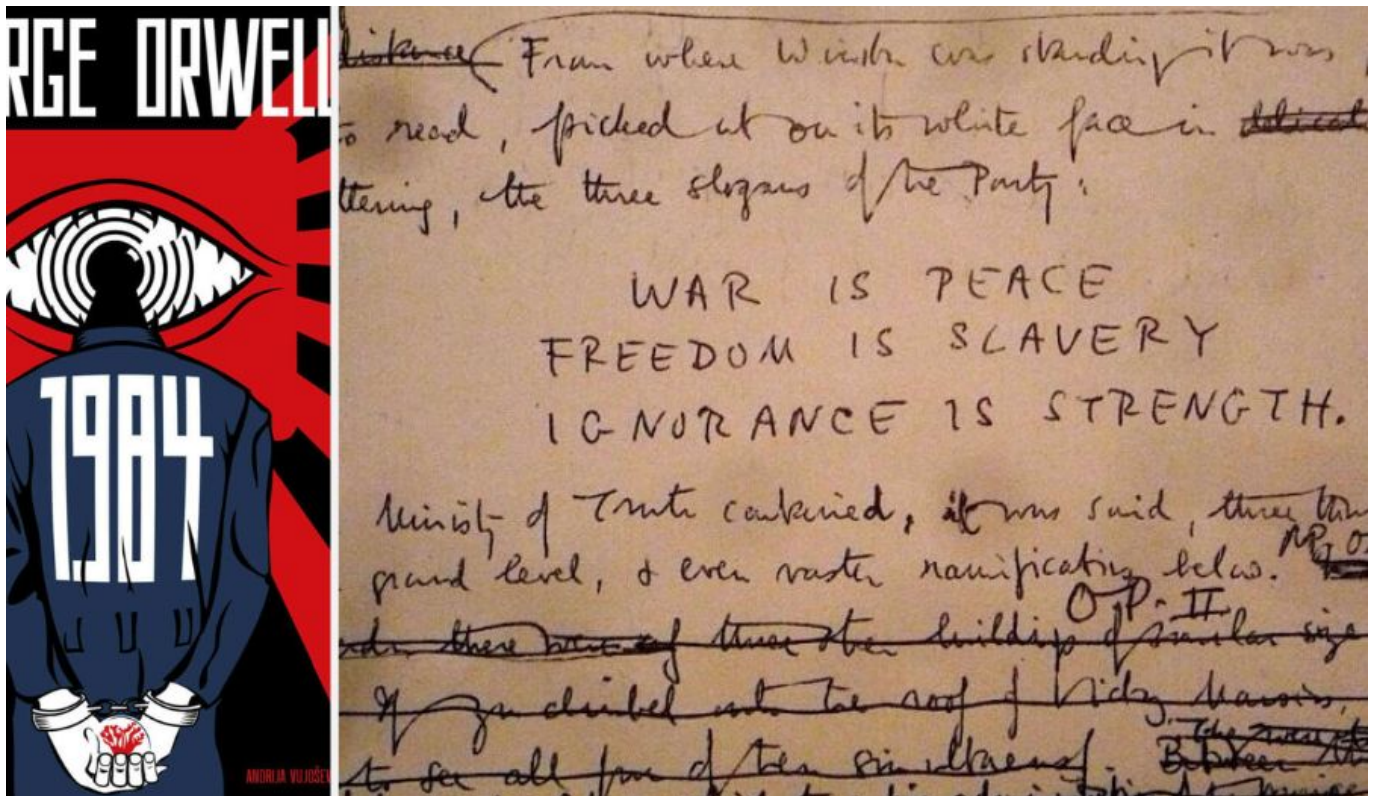 RGE ORWELL
1984
ANDRIJA VUJOŠEV
distance From where Winston was standing it was
to read, picked out on its white face in
ttering, the three slogans of the Party:
WAR IS PEACE
FREEDOM IS SLAVERY
IGNORANCE IS STRENGTH.
Ministry of Truth contained, it was said, three thou
ground level, & even vaster ramifications below.
OP. II
there were three other buildings of similar size
If you climbed onto the roof of Victory Mansions,
to see all four of them simultaneously. Between